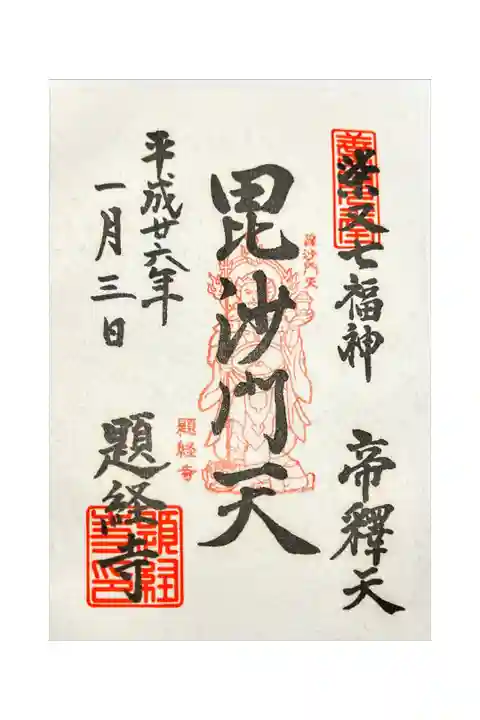 柴又七福神
帝釋天
毘沙門天
毘沙門天
題経寺
平成廿六年
一月三日
題経寺
題経
寺印